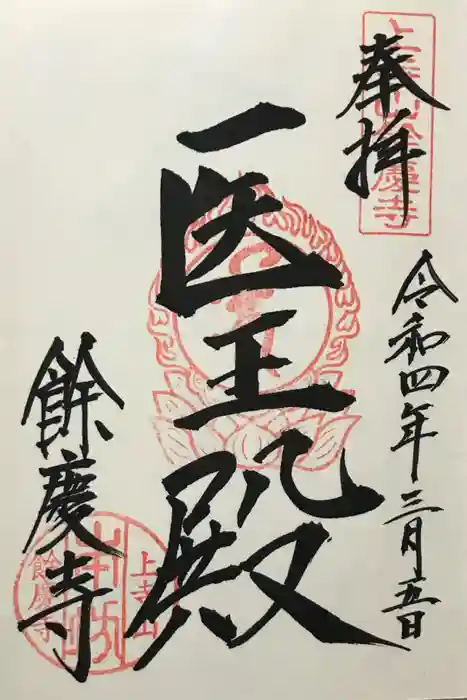 奉拝
上寺山餘慶寺
令和四年三月五日
医王殿
餘慶寺
上寺山
餘慶寺